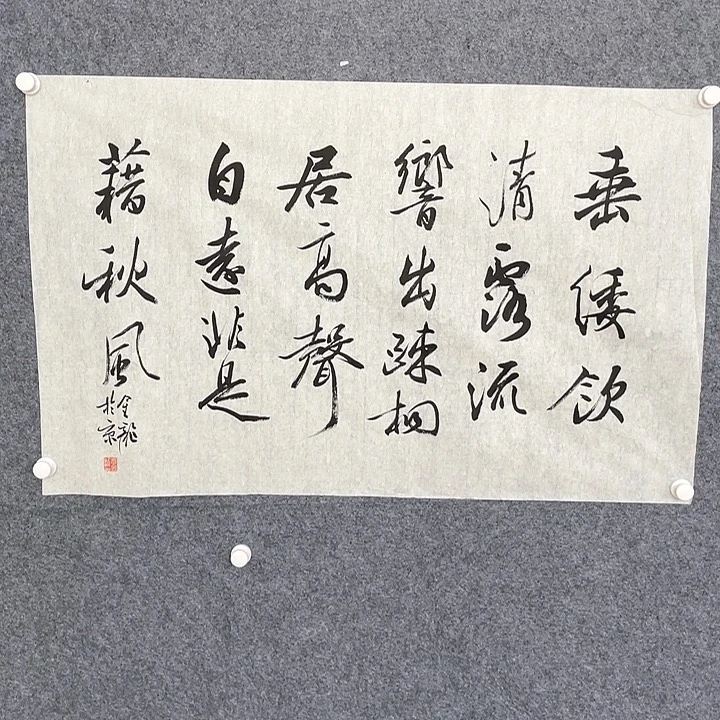 垂緌飲
清露流
響出疎桐
居高聲
自遠非是
藉秋風
金龍
於京